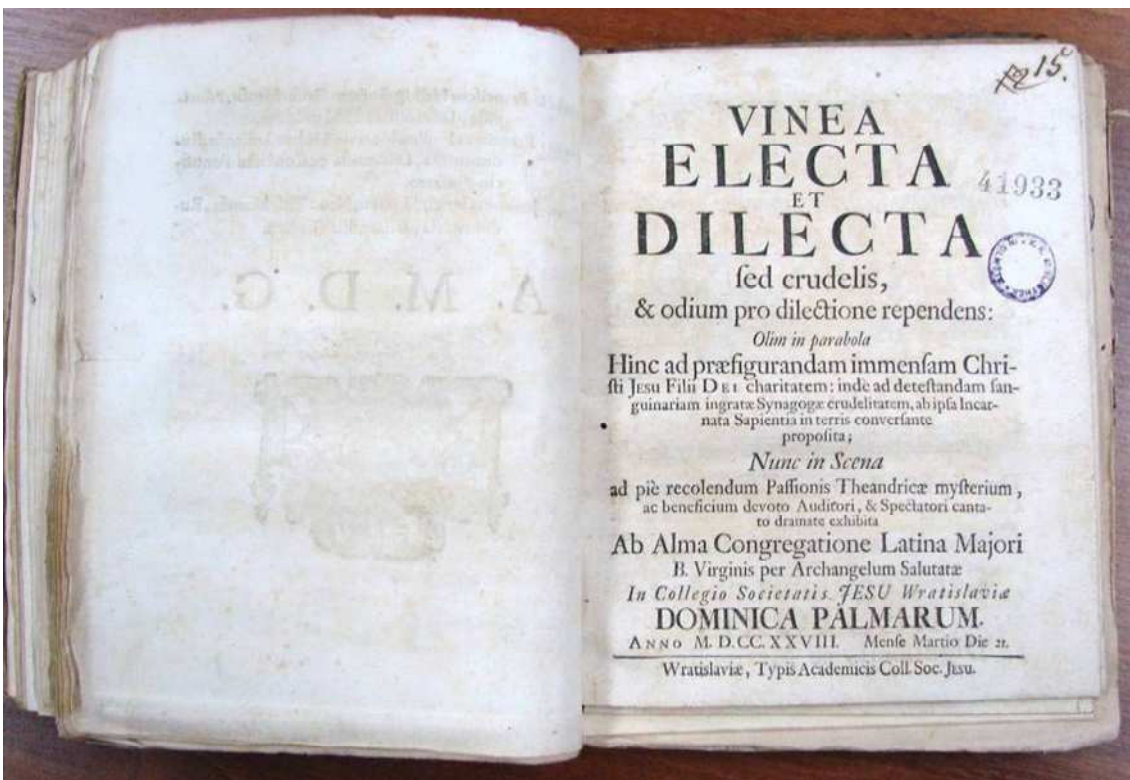 A. M. D. G.
15.
VINEA
ELECTA
ET
DILECTA
41933
ſed crudelis,
& odium pro dilectione rependens:
Olim in parabola
Hinc ad præfigurandam immenſam Chri-
ſti JESU Filii DEI charitatem: inde ad deteſtandam ſan-
guinariam ingratæ Synagogæ crudelitatem, ab ipſa Incar-
nata Sapientia in terris converſante
propoſita;
Nunc in Scena
ad piè recolendum Paſſionis Theandricæ myſterium,
ac beneficium devoto Auditori, & Spectatori canta-
to dramate exhibita
Ab Alma Congregatione Latina Majori
B. Virginis per Archangelum Salutatæ
In Collegio Societatis JESU Wratislaviæ
DOMINICA PALMARUM.
ANNO M. D.CC. XXVIII. Menſe Martio Die 21.
Wratislaviæ, Typis Academicis Coll. Soc. JESU.